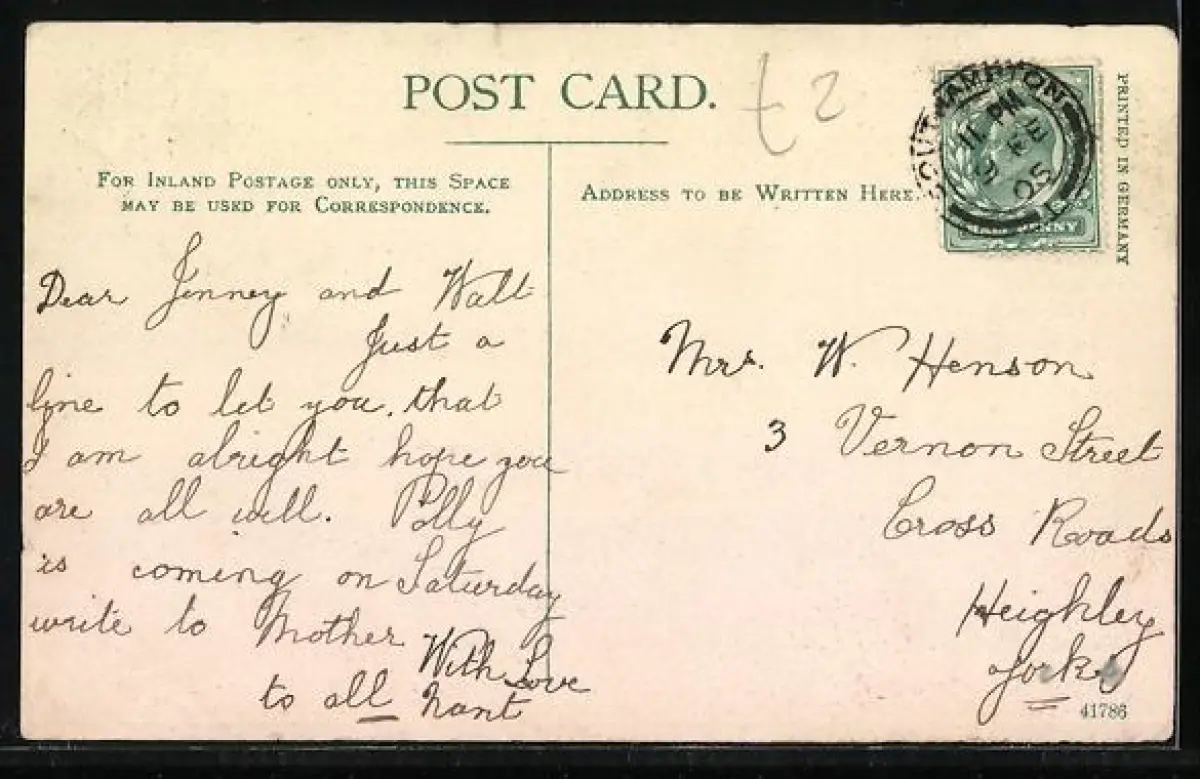 POST CARD.
£2
FOR INLAND POSTAGE ONLY, THIS SPACE
MAY BE USED FOR CORRESPONDENCE.
ADDRESS TO BE WRITTEN HERE.
SOUTHAMPTON
11 PM
FEB
05
PRINTED IN GERMANY
Dear Jenney and Walt
Just a
line to let you, that
I am alright hope you
are all well. Polly
is coming on Saturday
write to Mother
With Love
to all Nant
Mrs. W. Henson
3 Vernon Street
Cross Roads
Heighley
Yorks
41786